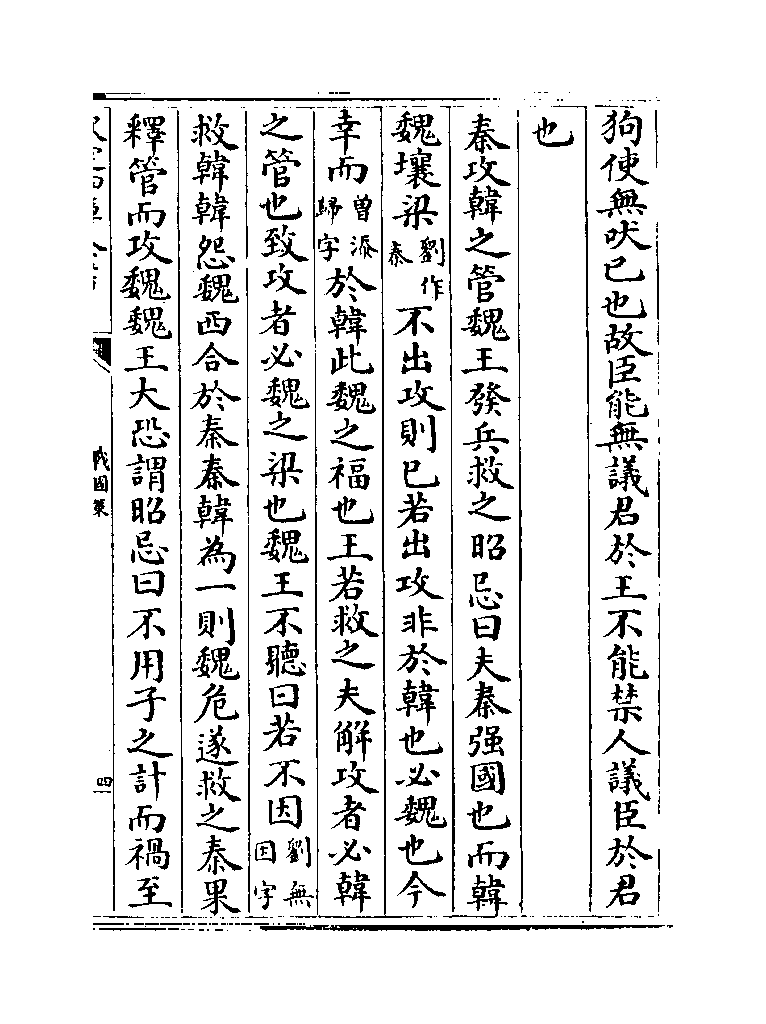 狗使無吠已也故臣能無議君於王不能禁人議臣於君
也
秦攻韓之管魏王發兵救之昭忌曰夫秦强國也而韓
魏壤梁劉作秦不出攻則已若出攻非於韓也必魏也今
幸而曽添歸字於韓此魏之福也王若救之夫解攻者必韓
之管也致攻者必魏之梁也魏王不聽曰若不因劉無因字
救韓韓怨魏西合於秦秦韓為一則魏危遂救之秦果
釋管而攻魏魏王大恐謂昭忌曰不用子之計而禍至
戰國策
四